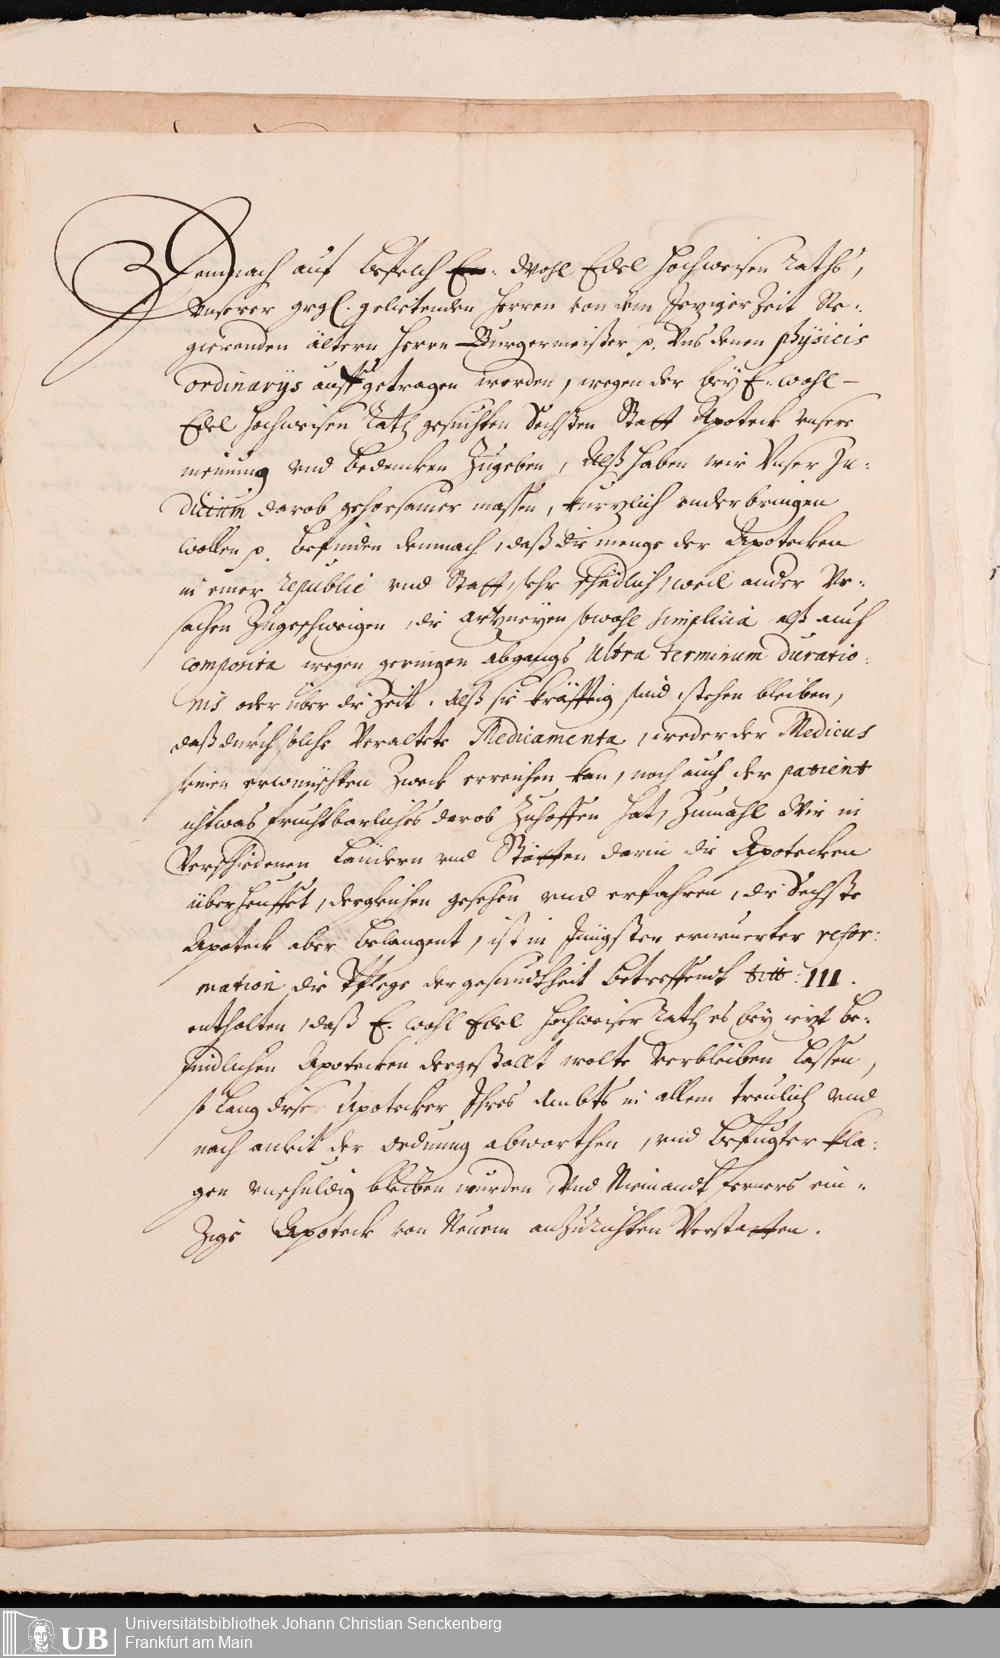 Demnach auf Befelch En. Wohl Edel Hochweisen Raths,
Unserer grgl. gelietenden Herren von dem Jeziger Zeit Re-:
gierenden ältern Herrn Burgermeister p. Uns denen physicis
ordinarijs auffgetragen worden, wegen der beÿ E. wohl-
Edel Hochweisen Rath gesuchten Sechsten Statt Apoteck unsere
meinung und bedencken Zugeben, Alß haben wir Unser Ju-:
dicium darob gehorsamer massen, kurzlich underbringen
wollen p. befinden demnach, daß die menge der Apotecken
in einer Republic und Statt, sehr schädlich, weil ander Ur-:
sachen Zugeschweigen, die Artzneyen sowohl simplicia alß auch
composita wegen geringen abgangs Ultra terminum duratio:
nis oder über die Zeit, alß sie kräfftig sind, stehen bleiben,
daß durch solche Veraltete Medicamenta, weder der Medicus
seinen erwünschten Zweck erreichen kan, noch auch der patient
ichtwas fruchtbarliches darob Zuhoffen hat, Zumahl Wir in
Verschiedenen Ländern und Stätten darin die Apotecken
überheuffet, dergleichen gesehen und erfahren, die Sechste
Apoteck aber belangent, ist in Jüngster erneuerter refor:
mation die Pflege der gesundtheit betreffendt titt: III.
enthalten, daß E. wohl Edel Hochweiser Rath es beÿ ietzt be-:
findlichen Apotecken dergestallt wolte verbleiben lassen,
so lang diese Apotecker Ihres Ambts in allem treulich und
nach anleit der ordnung abwarthen, und befugter kla:
gen unschuldig bleiben würden, Und Niemandt ferners ein-:
Zige Apoteck von Neuem anzurichten Verstatten.
UB
Universitätsbibliothek Johann Christian Senckenberg
Frankfurt am Main